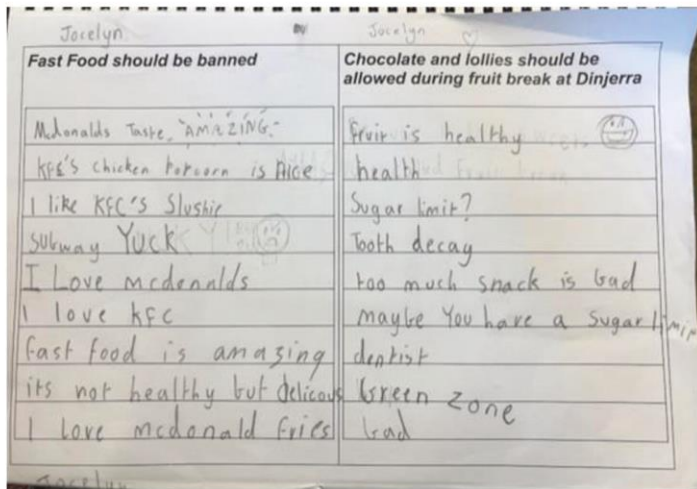 Jocelyn
Jocelyn
Fast Food should be banned
Mcdonalds Taste "AMAZING"
KFC's chicken Porcorn is Nice
I like KFC'S Slushie
subway YUCK
I Love mcdonnlds
I love kfc
fast food is amazing
its not healthy but delicous
I love mcdonald fries
Chocolate and lollies should be
allowed during fruit break at Dinjerra
Fruit is healthy
health
Sugar limit?
Tooth decay
too much snack is bad
maybe You have a sugar limit
dentist
Green zone
bad
Jocelyn